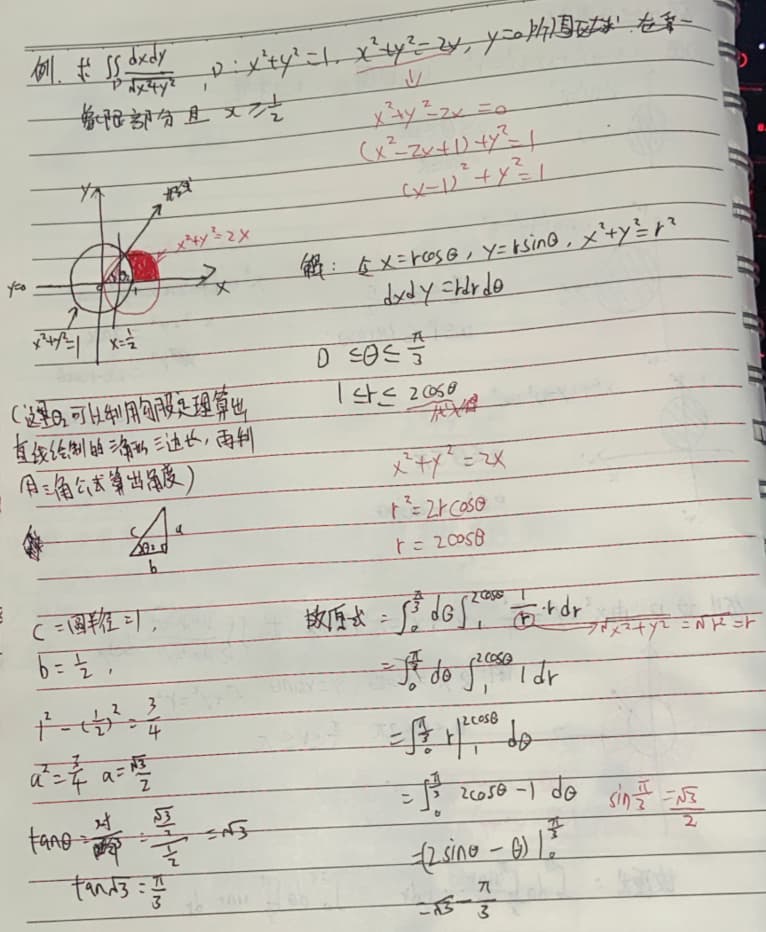 例. 求 ∬_D dxdy/√(x²+y²), D: x²+y²=1, x²+y²=2x, y=0所围区域 在第一
象限部分且 x ≥ 1/2
⇓
x²+y²-2x=0
(x²-2x+1)+y²=1
(x-1)²+y²=1
y
x²+y²=2x
y=0
x
x²+y²=1
x=1/2
解: 令 x=rcosθ, y=rsinθ, x²+y²=r²
dxdy=rdrdθ
0 ≤θ≤ π/3
1≤r≤ 2cosθ
x²+y²=2x
r²=2rcosθ
r=2cosθ
(这里θ₂可以利用勾股定理算出
直线绘制的三角形三边长, 再利
用三角公式算出角度)
c
a
θ
b
c=圆半径=1,
b=1/2,
1²-(1/2)²=3/4
a²=3/4 a=√3/2
tanθ= = (√3/2)/(1/2) =√3
tan√3=π/3
故原式=∫₀^(π/3) dθ∫₁^(2cosθ) 1/r·rdr
→√(x²+y²)=√r²=r
=∫₀^(π/3) dθ ∫₁^(2cosθ) 1dr
=∫₀^(π/3) r|₁^(2cosθ) dθ
=∫₀^(π/3) 2cosθ-1 dθ
sin π/3=√3/2
=(2sinθ-θ)|₀^(π/3)
=√3-π/3